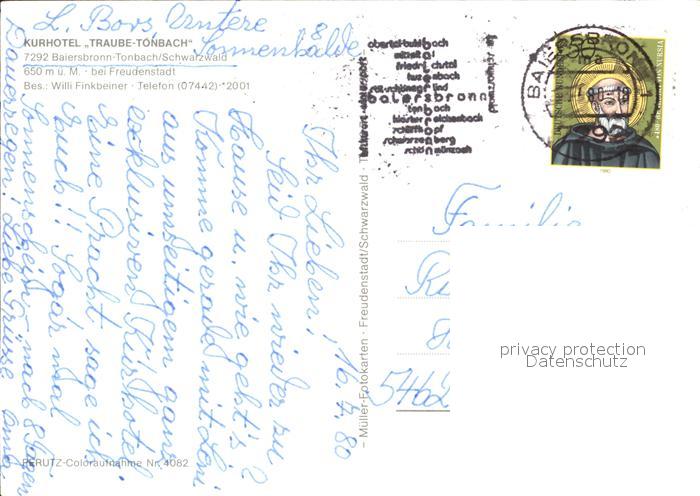 L. Bors, Untere
Sonnenhalde
KURHOTEL „TRAUBE-TONBACH"
7292 Baiersbronn-Tonbach/Schwarzwald
650 m ü. M. · bei Freudenstadt
Bes.: Willi Finkbeiner · Telefon (07442) *2001
16. 7. 80
Ihr Lieben!
Seid Ihr wieder zu
Hause u. wie geht's?
Komme gerade mit Leni
aus umseitigem ganz
exklusiven Kurhotel
Eine Pracht sage ich
Euch!! Sogar mal
Sonnenschein nach 8 Tagen
Dauerregen! Liebe Grüsse Oma
PERUTZ-Coloraufnahme Nr. 4082
– Müller-Fotokarten · Freudenstadt/Schwarzwald
obertal-buhlbach
mitteltal
friedrichstal
huzenbach
baiersbronn
tonbach
klosterreichenbach
schwarzenberg
schönmünzach
BAIERSBRONN
1980
Familie
5462
privacy protection
Datenschutz